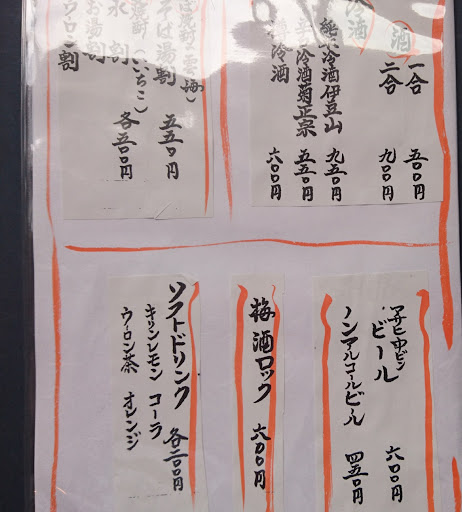 酒
一合 五〇〇円
二合 九〇〇円
酒
純米冷酒伊豆山 九五〇円
辛口冷酒菊正宗 五五〇円
冷酒 六〇〇円
そば湯割 五五〇円
(いいちこ)
水割
お湯割
ウーロン割
各五〇〇円
アサヒ中ビン
ビール 六〇〇円
ノンアルコールビール 四五〇円
梅酒ロック 六〇〇円
ソフトドリンク 各二〇〇円
キリンレモン コーラ
ウーロン茶 オレンジ